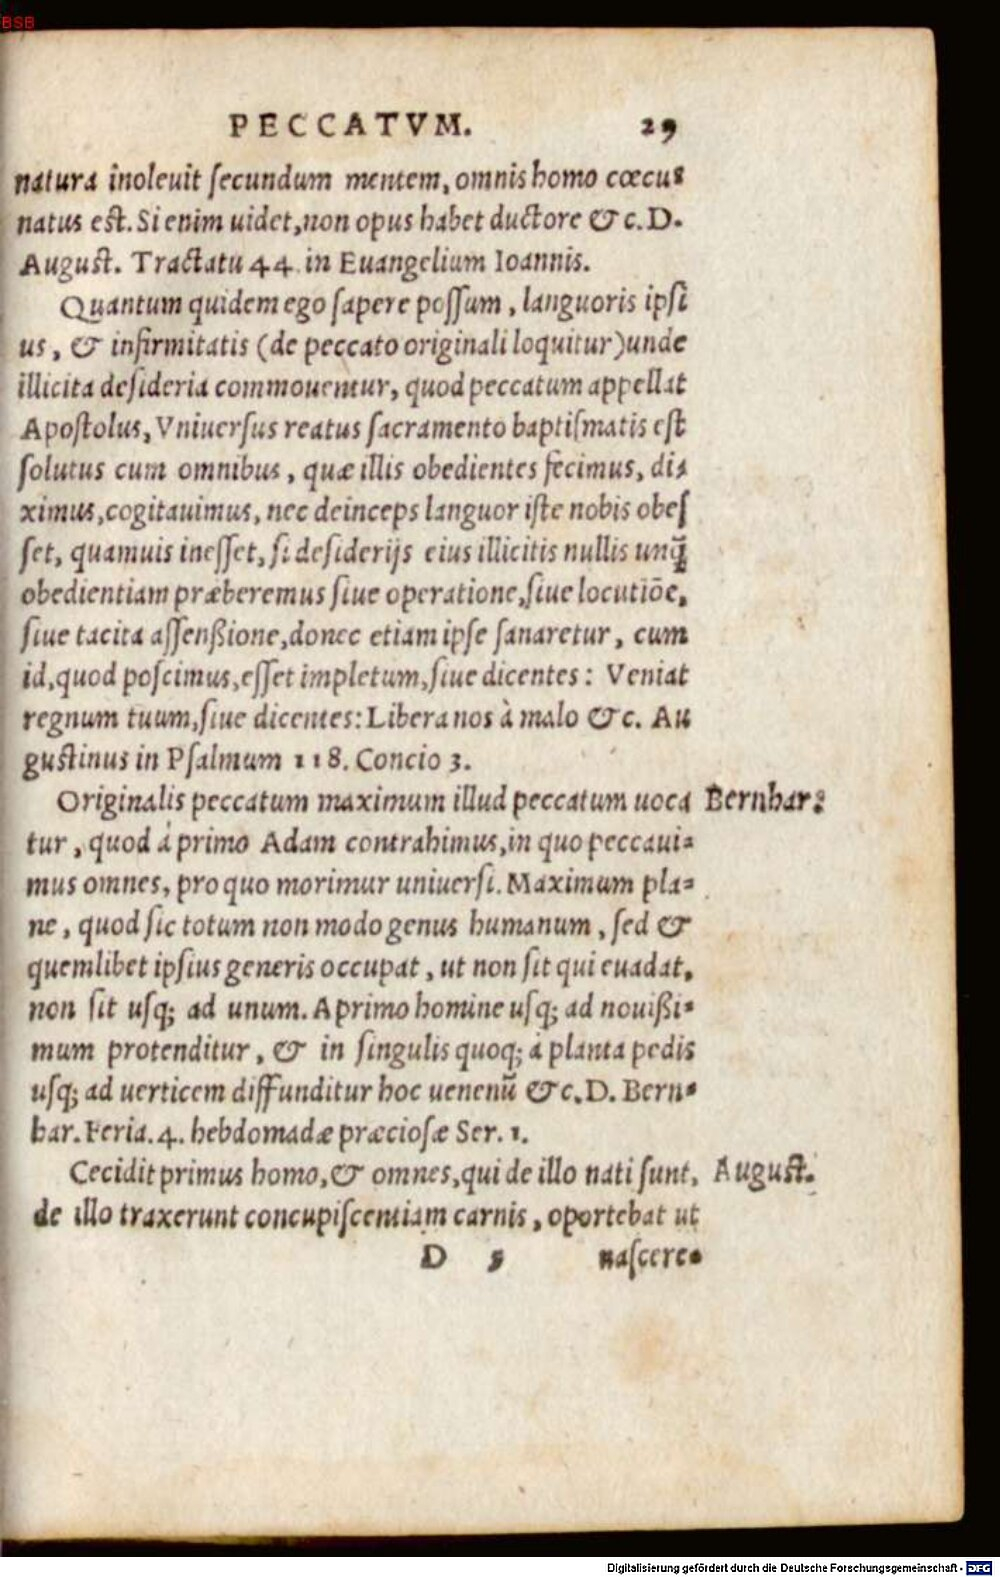 BSB
PECCATVM. 29
natura inoleuit secundum mentem, omnis homo cœcus
natus est. Si enim uidet, non opus habet ductore &c. D.
August. Tractatu 44. in Euangelium Ioannis.
Quantum quidem ego sapere possum, languoris ipsi
us, & infirmitatis (de peccato originali loquitur) unde
illicita desideria commouentur, quod peccatum appellat
Apostolus, Vniuersus reatus sacramento baptismatis est
solutus cum omnibus, quæ illis obedientes fecimus, di⸗
ximus, cogitauimus, nec deinceps languor iste nobis obes
set, quamuis inesset, si desiderijs eius illicitis nullis unq̃
obedientiam præberemus siue operatione, siue locutiōe,
siue tacita assenßione, donec etiam ipse sanaretur, cum
id, quod poscimus, esset impletum, siue dicentes: Veniat
regnum tuum, siue dicentes: Libera nos à malo &c. Au
gustinus in Psalmum 118. Concio 3.
Originalis peccatum maximum illud peccatum uoca Bernhar⸗
tur, quod á primo Adam contrahimus, in quo peccaui⸗
mus omnes, pro quo morimur uniuersi. Maximum pla⸗
ne, quod sic totum non modo genus humanum, sed &
quemlibet ipsius generis occupat, ut non sit qui euadat,
non sit usq; ad unum. A primo homine usq; ad nouißi⸗
mum protenditur, & in singulis quoq; à planta pedis
usq; ad uerticem diffunditur hoc uenenũ &c. D. Bern⸗
har. Feria. 4. hebdomadæ præciosæ Ser. 1.
Cecidit primus homo, & omnes, qui de illo nati sunt, August.
de illo traxerunt concupiscentiam carnis, oportebat ut
D 5 nascere⸗
Digitalisierung gefördert durch die Deutsche Forschungsgemeinschaft - DFG